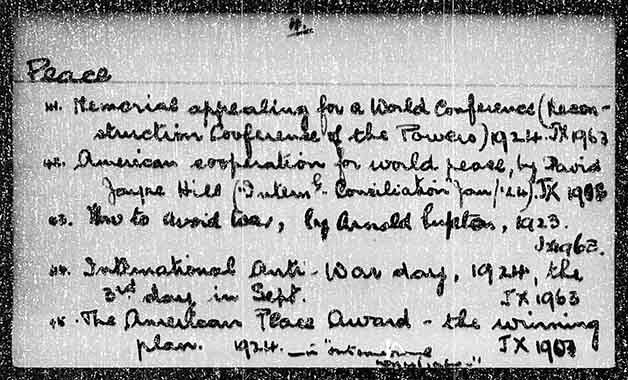 4.
Peace
41. Memorial appealing for a World Conference (Recon-
struction Conference of the Powers) 1924. JX 1963
42. American cooperation for world peace, by David
Jayne Hill (Intern'l Conciliation Jan/'24). JX 1963
43. How to avoid war, by Arnold Lupton, 1923.
JX 1963.
44. International Anti-War day, 1924, the
3rd day in Sept. JX 1963
45. The American Peace Award - the winning
plan. 1924. — in "International
Conciliation" JX 1963